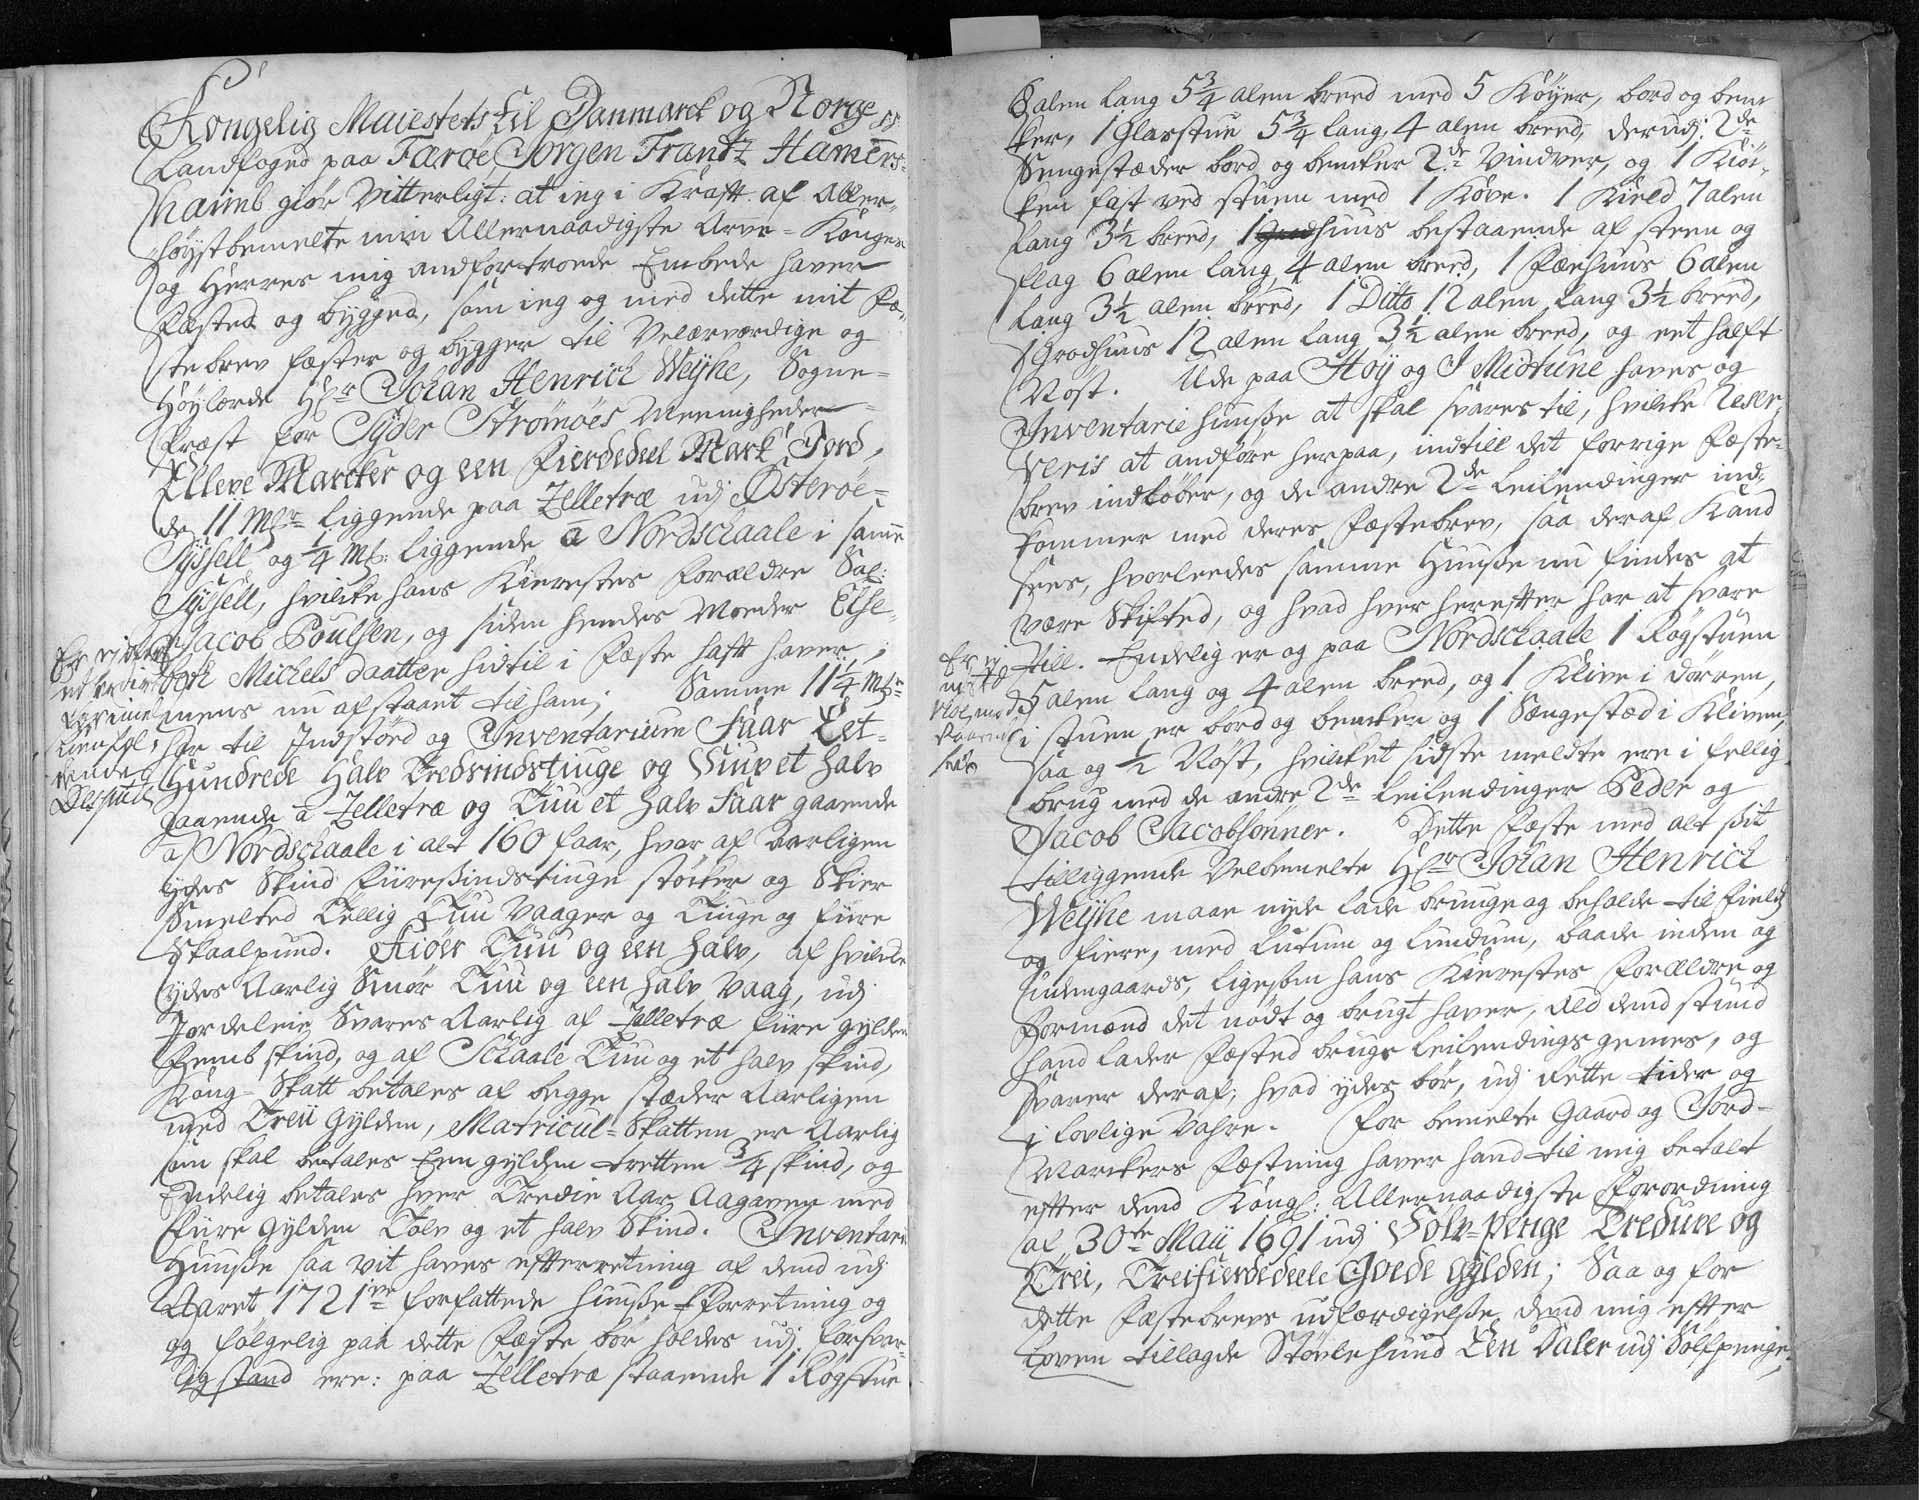 Kongelig Maiestets til Danmarck og Norge ss:
Landfoged paa Færøe, Jørgen Frantz Hamers-
haimb giør Vitterligt: at ieg i Krafft af Aller-
høystbemelte min Allernaadigste Arve-Konges
og Herres mig andfortroede Embede haver
Fæsted og bygged, som ieg og med dette mit Fæ-
stebrev fæster og bygger til Velærværdige og
Høylærde Hr Johan Henrich Weyhe, Sogne-
Præst for Syder Strømøes Meenigheder
Elleve Marcker og een Fierdedeel Mark Jord,
de 11 Mkr liggende paa Zelletræ udj Østerøe-
Syssell og 1/4 Mk: liggende a Nordschaale i samme
Syssell, hvilke hans Kierestes Forældre Sal:
Jacob Poulsen, og siden hendes Moeder Else-
beth Michels daatter hidtil i Fæste hafft haver,
mens nu afstaaet til ham; Samme 11 1/4 Mkr
har til Indstørd og Inventarium Faar Eet-
Hundrede Halv Tredsindstiuge og Siuv et halv
gaaende a Zelletræ og Tuu et halv Faar gaaende
a Nordschaale i alt 160 faar, hvor af aarligen
ydes Skind Fiiresindstiuge støcker og Skier
Smelted Tellig Tuu Vaager og Tiuge og fiire
Skaalpund. Kiøer Tuu og een halv, af hvilke
ydes Aarlig Smør Tuu og een halv Vaag, udj
Jordeleie Svares Aarlig af Zelletræ fiire gylden
Femb skind, og af Schaale Tuu og et halv skind,
Kong-Skatt betales af begge stæder Aarligen
med Treii Gylden, Matricul-Skatten er Aarlig
som skal betales Een gylden tretten 3/4 skind, og
Endelig betales hver Tredie Aar Aagaven med
Fiire Gylden Tolv og et halv Skind. Inventarii
Huuße saa vit haves efterretning af dend udj
Aaret 1721 forfattede huuße-Forretning og
og følgelig paa dette Fæste bør holdes udj forsvar-
lig stand ere: paa Zelletræ staaende 1 Røgstue
8 alen lang 5 3/4 alen breed med 5 Køyer, bord og ben-
ker, 1 Glasstue 5 3/4 lang, 4 alen breed, derudj 2de
Sengestæder bord og bencker 2de Vindver, og 1 Kiø-
ken fast ved stuen med 1 Køve. 1 Kield 7 alen
lang 3 1/2 breed, 1 huus bestaaende af steen og
flag 6 alen lang 4 alen breed, 1 Fæehuus 6 alen
lang 3 1/2 alen breed, 1 Ditto 12 alen lang 3 1/2 breed,
1 Grodhuus 12 alen lang 3 1/2 alen breed, og eet halft
Nøst. Ude paa Høy og I Midtune haves og
Inventarie huuße at skal svares til, hvilke Reser-
veris at andføre herpaa, indtill det forrige Fæste-
brev indløber, og de andre 2de Leilendinger ind-
kommer med deres Fæstebrev, saa deraf Kand
sees, hvorleedes samme Huuße nu findes at
være Skifted, og hvad hver hereffter har at svare
till. Endelig er og paa Nordschaale 1 Røgstuen
5 alen lang og 4 alen breed, og 1 Klive i dørren,
i stuen er bord og bencker og 1 Sængestæd i Kliven,
saa og 1/2 Nøst, hvilcket sidste meldte ere i fellig
brug med de andre 2de Leilendinger Peder og
Jacob Jacobsønner. Dette Fæste med alt sit
tilliggende Velbemelte Hr Johan Henrich
Weyhe maae nyde lade bruuge og beholde til Field
og Fiere, med Lutum og Lundum, baade inden og
udengaards, ligesom hans Kierestes Forældre og
Formænd det nødt og brugt haver, Ald dend stund
hand lader Fæsted bruge Leilendings gemes, og
svarer deraf, hvad ydes bør, udj rette tider og
i Lovlige Vahre. For bemelte Gaard og Jord-
Marckers Fæstning haver hand til mig betalt
effter dend Kongl: Allernaadigste Forordning
af 30te Maii 1691 udj Sølv-Penge Tredure og
Trei, Treifierdedeele Goede Gylden; Saa og for
dette Fæstebrevs udfærdigelse dend mig effter
Loven tillagde Støvlehuud Een Daler udj Sølfpenge,